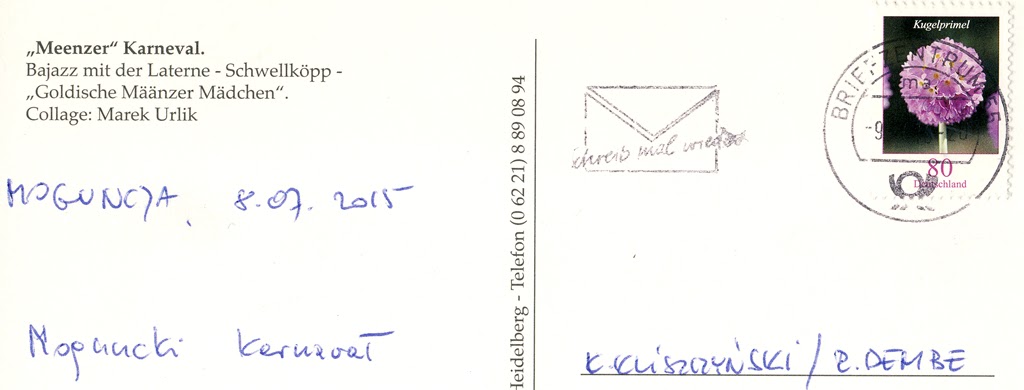 „Meenzer“ Karneval.
Bajazz mit der Laterne - Schwellköpp -
„Goldische Määnzer Mädchen“.
Collage: Marek Urlik
MOGUNCJA, 8.07.2015
Moguncki Karnawał
Heidelberg - Telefon (0 62 21) 8 89 08 94
schreib mal wieder
BRIEFZENTRUM
Kugelprimel
80
Deutschland
K. KLISZCZYŃSKI / Z. DEMBE